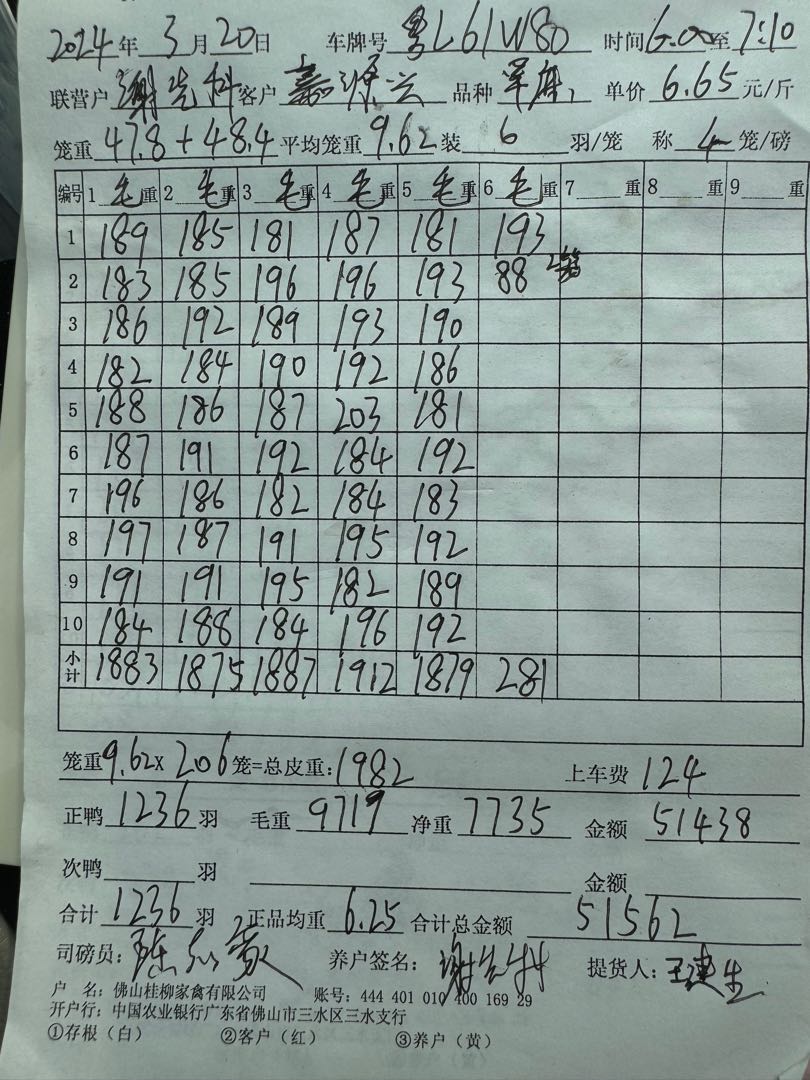 2024年3月20日 车牌号 粤L61W80 时间6:00至7:10
联营户 谢先科 客户 嘉源兴 品种 单价 6.65 元/斤
笼重 47.8+48.4 平均笼重 9.62 装 6 羽/笼 称 4 笼/磅
编号 1 毛重 2 毛重 3 毛重 4 毛重 5 毛重 6 毛重 7 重 8 重 9 重
1 189 185 181 187 181 193
2 183 185 196 196 193 88 2笼
3 186 192 189 193 190
4 182 184 190 192 186
5 188 186 187 203 181
6 187 191 192 184 192
7 196 186 182 184 183
8 197 187 191 195 192
9 191 191 195 182 189
10 184 188 184 196 192
小计 1883 1875 1887 1912 1879 281
笼重 9.62x 206 笼=总皮重: 1982 上车费 124
正鸭 1236 羽 毛重 9719 净重 7735 金额 51438
次鸭 羽 金额
合计 1236 羽 正品均重 6.25 合计总金额 51562
司磅员: 养户签名: 谢先科 提货人: 王建生
户 名: 佛山桂柳家禽有限公司 账号: 444 401 010 400 169 29
开户行: 中国农业银行广东省佛山市三水区三水支行
①存根(白) ②客户(红) ③养户(黄)